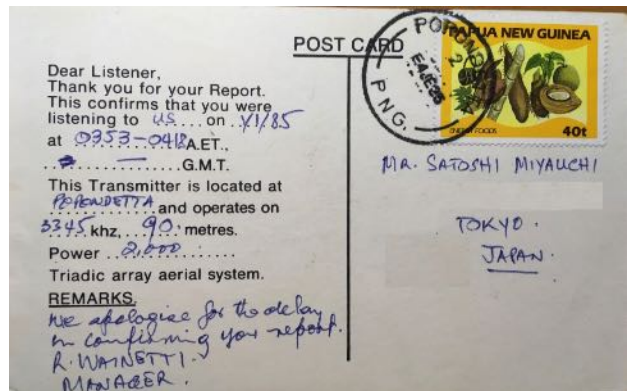 POST CARD
Dear Listener,
Thank you for your Report.
This confirms that you were
listening to US on 1/1/85
at 0353-0418 A.ET.,
— G.M.T.
This Transmitter is located at
POPONDETTA and operates on
3345 khz, 90 metres.
Power 2,000
Triadic array aerial system.
REMARKS.
We apologise for the delay
in confirming your report.
R. WAINETTI.
MANAGER.
PAPUA NEW GUINEA
40t
P.N.G.
MR. SATOSHI MIYAUCHI
TOKYO.
JAPAN.